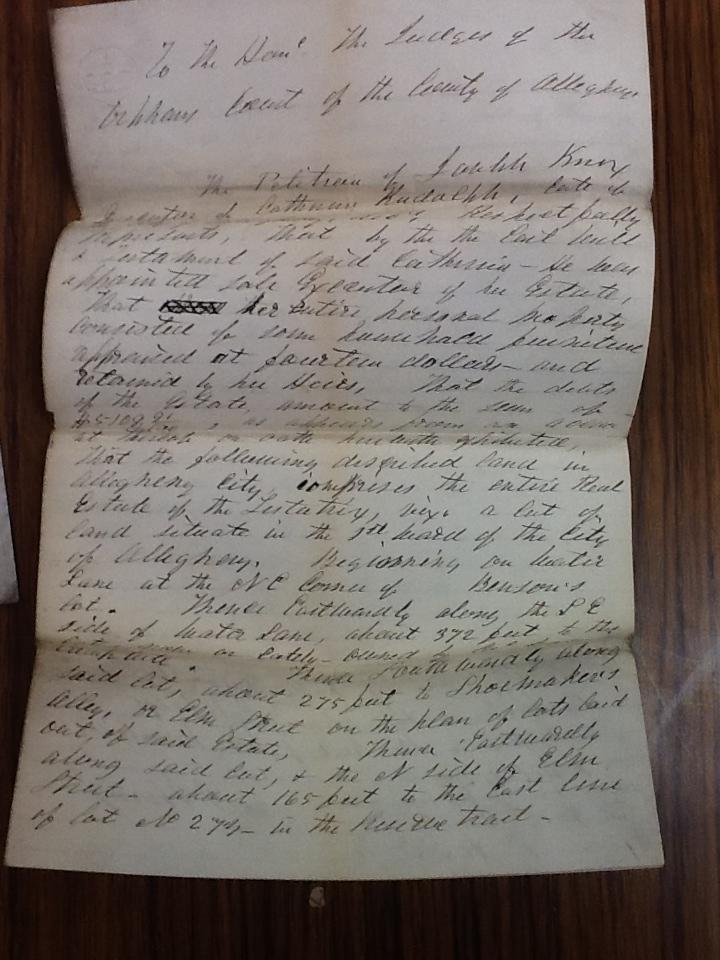 To The Honl. The Judges of the
Orphans Court of the County of Allegheny
The Petition of Joseph Knox
Executor of Catharine Rudolph, late of
Respectfully
represents, that by the the last will
& testament of said Catharine - He was
appointed sole Executor of her Estate,
That her Entire personal property
consisted of some household furniture
appraised at fourteen dollars - and
retained by her Heirs, That the debts
of the Estate, amount to the sum of
, as appears from an
thereof on oath herewith exhibited,
that the following described land in
Allegheny City, comprises the entire Real
Estate of the Testatrix, viz. a lot of
land situate in the ward of the City
of Allegheny. Beginning on Water
Lane at the N E Corner of Benson's
lot. Thence Eastwardly along the S E
side of Water Lane, about 372 feet, to the
or lately owned by
Thence Southwardly along
said lot, about 275 feet to Shoemaker's
Alley, or Elm Street on the plan of lots laid
out of said Estate, Thence Eastwardly
along said lot, & the N side of Elm
Street - about 165 feet to the East line
of lot No 274 - in the Reserve tract -